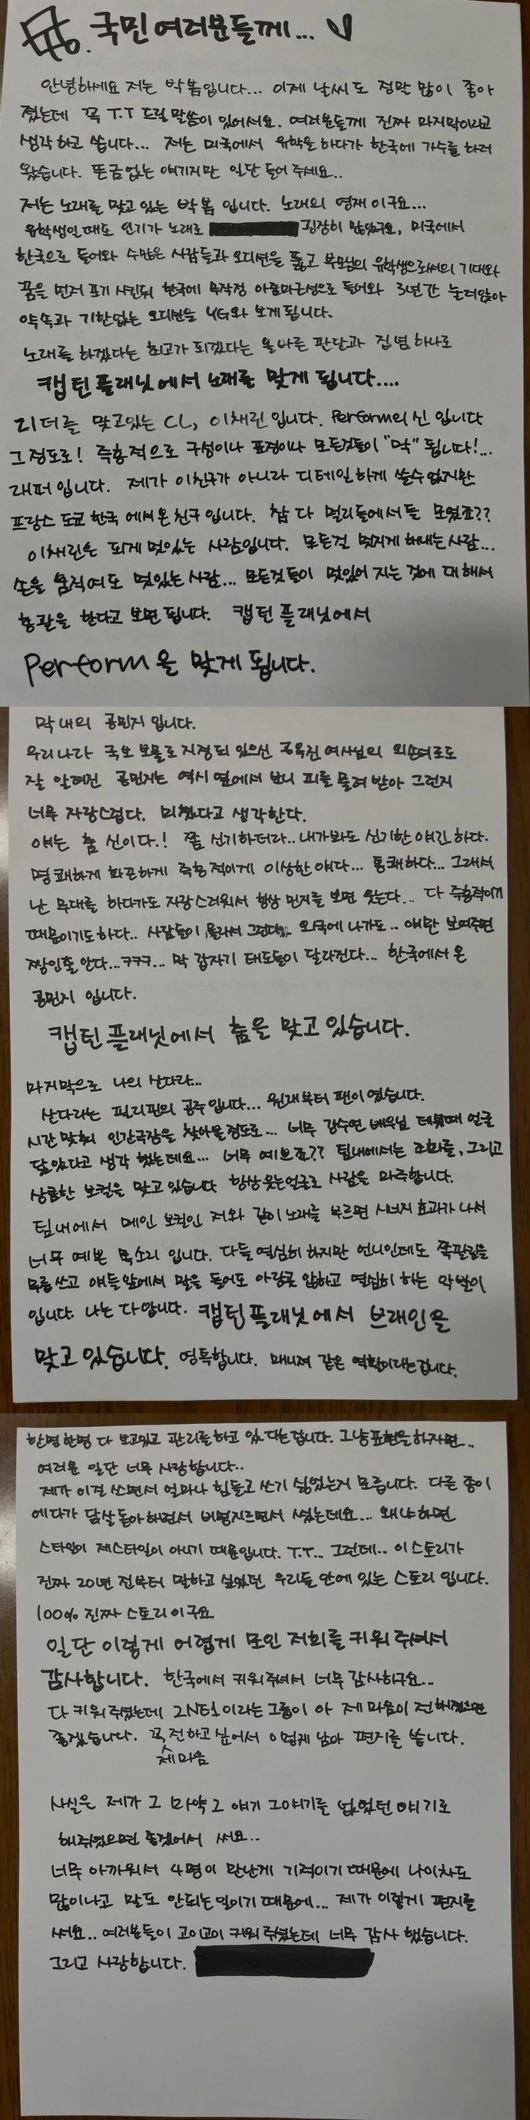 To. 국민 여러분들께...
안녕하세요 저는 박봄입니다... 이제 날씨도 정말 많이 좋아
졌는데 꼭 T.T 드릴 말씀이 있어서요. 여러분들께 진짜 마지막이라고
생각하고 씁니다... 저는 미국에서 유학을 하다가 한국에 가수를 하러
왔습니다. 뜬굼없는 얘기지만 일단 들어 주세요..
저는 노래를 맞고 있는 박봄 입니다. 노래의 영재 이구요...
유학생인 때도 인기가 노래로 굉장히 많았구요, 미국에서
한국으로 들어와 수많은 사람들과 오디션을 뚫고 부모님의 유학생으로써의 기대와
꿈을 먼저 포기 시킨뒤 한국에 무작정 아줌마근성으로 들어와 3년간 눌러앉아
약속과 기한없는 오디션을 YG와 보게 됩니다.
노래를 하겠다는 최고가 되겠다는 올바른 판단과 집념 하나로
캡틴 플래닛에서 노래를 맞게 됩니다....
리더를 맞고있는 CL, 이채린 입니다. Perform의 신 입니다
그정도로! 즉흥적으로 구성이나 표정이나 모든것들이 "막" 됩니다!...
래퍼입니다. 제가 이친구가 아니라 디테일하게 쓸수 없지만
프랑스 도쿄 한국 에서 온 친구 입니다. 참 다 멀리들에서들 모였죠??
이채린은 되게 멋있는 사람입니다. 모든걸 멋지게 해내는 사람...
손을 움직여도 멋있는 사람... 모든것들이 멋있어 지는 것에 대해서
총괄을 한다고 보면 됩니다. 캡틴 플래닛에서
Perform을 맞게 됩니다.
막내의 공민지 입니다.
우리나라 국보 보물로 지정되 있으신 공옥진 여사님의 외손녀로도
잘 알려진 공민지는 역시 옆에서 보니 피를 물려 받아 그런지
너무 자랑스럽다. 미쳤다고 생각한다.
얘는 춤 신이다.! 쫌 신기하더라.. 내가봐도 신기한 얘긴 하다.
명쾌하게 화끈하게 즉흥적이게 이상한 얘다... 통쾌하다... 그래서
난 무대를 하다가도 자랑스러워서 항상 민지를 보면 웃는다... 다 즉흥적이기
때문이기도 하다.. 사람들이 몰라서 그런데.. 외국에 나가도.. 얘만 보여주면
짱인줄 안다...ㅋㅋㅋ... 막 갑자기 태도들이 달라진다... 한국에서 온
공민지 입니다.
캡틴 플래닛에서 춤을 맞고 있습니다.
마지막으로 나의 산다라...
산다라는 필리핀의 공주 입니다... 원래부터 팬이 었습니다.
시간 맞춰 인간극장을 찾아볼 정도로... 너무 강수연 배우님 데뷔때 얼굴
닮았다고 생각 했는데요... 너무 예쁘죠?? 팀내에서는 조화를, 그리고
상큼한 보컬을 맞고 있습니다 항상 웃는얼굴로 사람을 마주합니다.
팀내에서 메인 보컬인 저와 같이 노래를 부르면 시너지 효과가 나서
너무 예쁜 목소리 입니다. 다들 열심히 하지만 언니인데도 쪽팔림을
무릅쓰고 얘들 앞에서 말을 들어도 아랑곳 않하고 열심히 하는 악발이
입니다. 나는 다 압니다. 캡틴플래닛에서 브레인을
맞고 있습니다. 영특합니다. 매니져 같은 역활이라는겁니다.
한명한명 다 보고있고 관리를 하고 있다는 겁니다. 그냥 표현을 하자면..
여러분 일단 너무 사랑합니다..
제가 이걸 쓰면서 얼마나 힘들고 쓰기 싫었는지 모릅니다. 다른 종이
에다가 닭살 돋아 하면서 비명지르면서 썼는데요... 왜냐하면
스타일이 제스타일이 아니기 때문입니다. T.T... 그런데.. 이 스토리가
진짜 20년 전부터 말하고 싶었던 우리들 안에 있는 스토리 입니다.
100% 진짜 스토리 이구요
일단 이렇게 어렵게 모인 저희를 키워 주셔서
감사합니다. 한국에서 키워주셔서 너무 감사하구요...
다 키워 주셨는데 2NE1이라는 그룹이 아 제 마음이 전해졌으면
좋겠습니다. 꼭 전하고 싶어서 이렇게 남아 편지를 씁니다.
제마음
사실은 제가 그 마약 그 얘기 그얘기를 없었던 얘기로
해주셨으면 좋겠어서 써요..
너무 아까워서 4명이 만난게 기적이기 때문에 나이차도
많이나고 말도 안되는 일이기 때문에... 제가 이렇게 편지를
써요.. 여러분들이 고이고이 키워 주셨는데 너무 감사 했습니다.
그리고 사랑합니다.